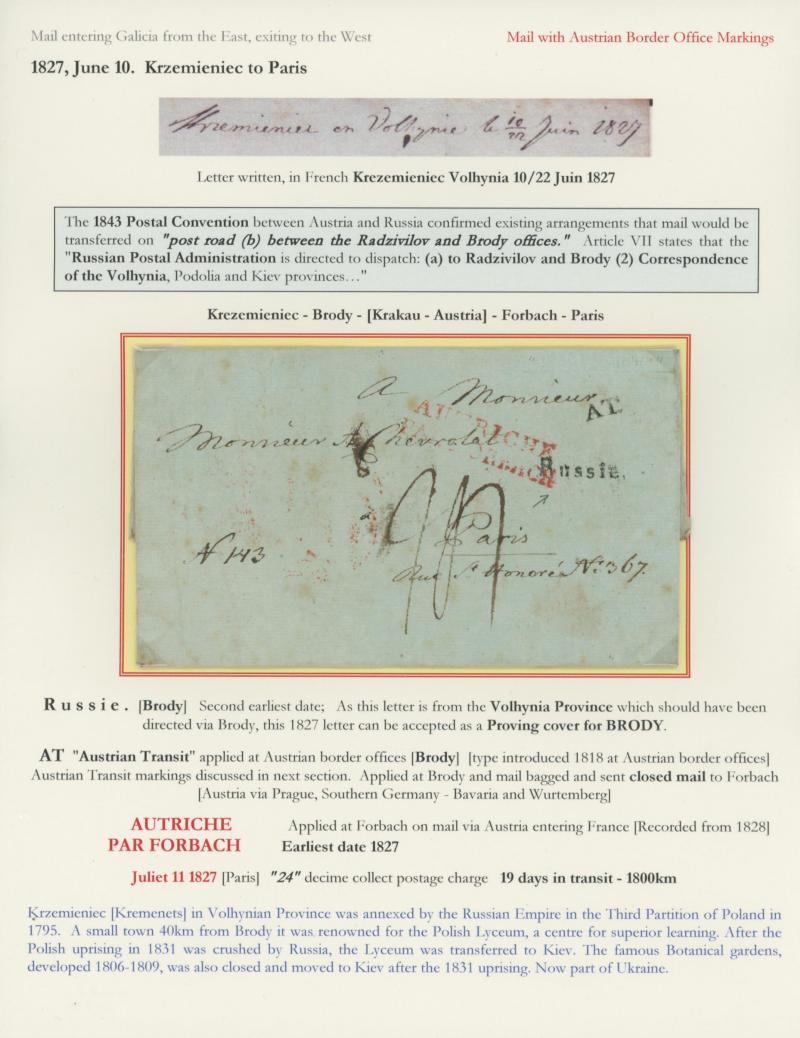 Mail entering Galicia from the East, exiting to the West
Mail with Austrian Border Office Markings
1827, June 10. Krzemieniec to Paris
Krzemieniec en Volhynie le 10/22 Juin 1827
Letter written, in French Krezemieniec Volhynia 10/22 Juin 1827
The 1843 Postal Convention between Austria and Russia confirmed existing arrangements that mail would be
transferred on "post road (b) between the Radzivilov and Brody offices." Article VII states that the
"Russian Postal Administration is directed to dispatch: (a) to Radzivilov and Brody (2) Correspondence
of the Volhynia, Podolia and Kiev provinces…"
Krezemieniec - Brody - [Krakau - Austria] - Forbach - Paris
A Monsieur
AT
AUTRICHE
PAR FORBACH
Monsieur Chevrolat
Russie.
à Paris
24
N 143
Rue St Honoré No. 367.
Russie. [Brody] Second earliest date; As this letter is from the Volhynia Province which should have been
directed via Brody, this 1827 letter can be accepted as a Proving cover for BRODY.
AT "Austrian Transit" applied at Austrian border offices [Brody] [type introduced 1818 at Austrian border offices]
Austrian Transit markings discussed in next section. Applied at Brody and mail bagged and sent closed mail to Forbach
[Austria via Prague, Southern Germany - Bavaria and Wurtemberg]
AUTRICHE
PAR FORBACH
Applied at Forbach on mail via Austria entering France [Recorded from 1828]
Earliest date 1827
Juliet 11 1827 [Paris] "24" decime collect postage charge 19 days in transit - 1800km
Krzemieniec [Kremenets] in Volhynian Province was annexed by the Russian Empire in the Third Partition of Poland in
1795. A small town 40km from Brody it was renowned for the Polish Lyceum, a centre for superior learning. After the
Polish uprising in 1831 was crushed by Russia, the Lyceum was transferred to Kiev. The famous Botanical gardens,
developed 1806-1809, was also closed and moved to Kiev after the 1831 uprising. Now part of Ukraine.